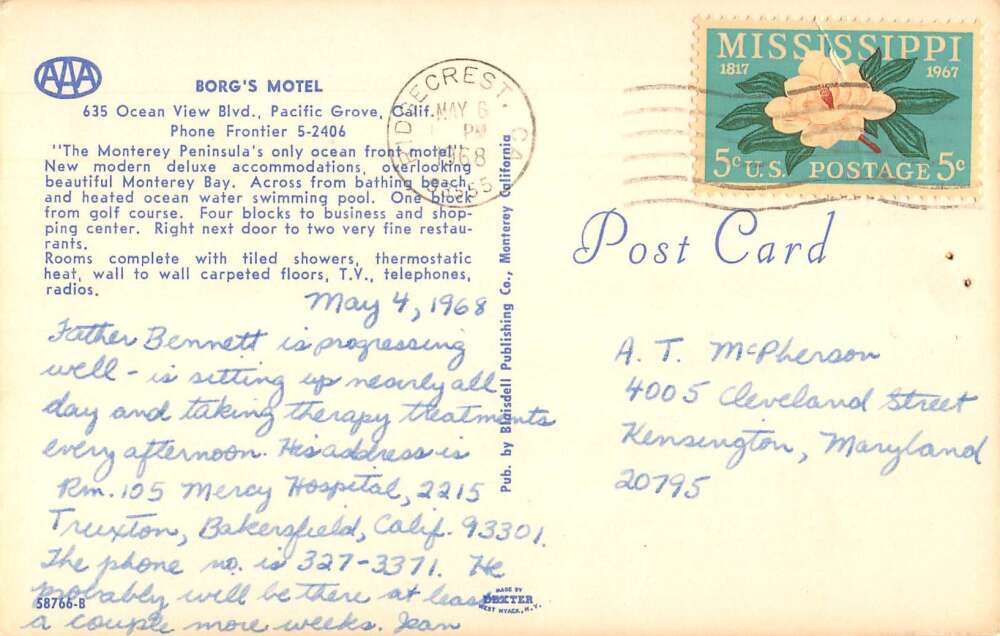 AAA
BORG'S MOTEL
635 Ocean View Blvd., Pacific Grove, Calif.
Phone Frontier 5-2406
"The Monterey Peninsula's only ocean front motel"
New modern deluxe accommodations, overlooking
beautiful Monterey Bay. Across from bathing beach
and heated ocean water swimming pool. One block
from golf course. Four blocks to business and shop-
ping center. Right next door to two very fine restau-
rants.
Rooms complete with tiled showers, thermostatic
heat, wall to wall carpeted floors, T.V., telephones,
radios.
May 4, 1968
Father Bennett is progressing
well - is sitting up nearly all
day and taking therapy treatments
every afternoon. His address is
Rm. 105 Mercy Hospital, 2215
Truxton, Bakersfield, Calif. 93301.
The phone no. is 327-3371. He
probably will be there at least
a couple more weeks. Jean
58766-B
MADE BY
DEXTER
WEST NYACK, N.Y.
Pub. by Blaisdell Publishing Co., Monterey California
RIDGECREST, CA
MAY 6
PM
1968
93555
MISSISSIPPI
1817 1967
5c U.S. POSTAGE 5c
Post Card
A. T. McPherson
4005 Cleveland Street
Kensington, Maryland
20795